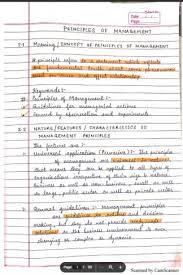 PRINCIPLES OF MANAGEMENT
2.1 Meaning / CONCEPT OF PRINCIPLES OF MANAGEMENT
A principle refers to a statement which reflects
the fundamental truth about some phenomenon
based on cause and effect relationship.
Keywords :-
Principles of Management :-
Guidelines for managerial actions
Derived by observation and experiments
2.2 NATURE / FEATURES / CHARACTERISTICS OF
MANAGEMENT PRINCIPLES
The features are :
1) Universal application (Pervasive) :- The principles
of management are universal in nature
that means they can be applied to all types of
organisations irrespective of their size & nature.
business as well as non-business, small as well
as large, public sector as well as private sector
2) General guidelines :- Management principles
are guidelines to action and decision
making, but they do not provide readymade
solutions as the business environment is ever
changing or complex or dynamic
Page
Scanned by CamScanner